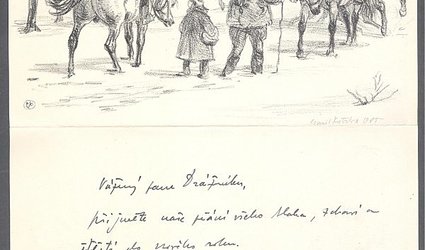 Vážený pane Drážníku,
přijměte naše přání všeho blaha, zdraví a
štěstí do nového roku.